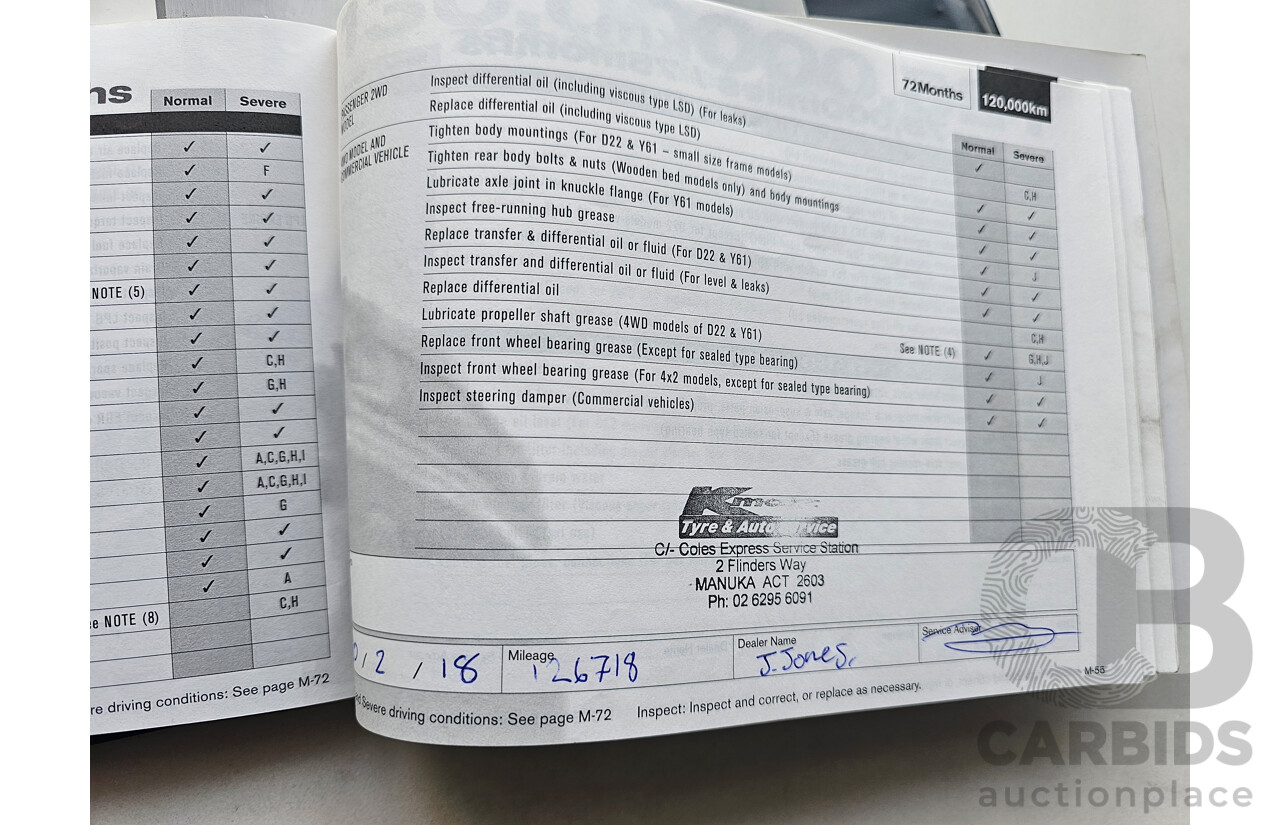 ns
Normal Severe
✓ ✓
✓ F
✓ ✓
✓ ✓
✓ ✓
✓ ✓
NOTE (5) ✓ ✓
✓ ✓
✓ ✓
✓ C,H
✓ G,H
✓ ✓
✓ ✓
✓ A,C,G,H,I
✓ A,C,G,H,I
✓ G
✓ ✓
✓ ✓
✓ A
e NOTE (8) C,H
re driving conditions: See page M-72
72Months 120,000km
Normal Severe
PASSENGER 2WD
MODEL
MODEL AND
COMMERCIAL VEHICLE
Inspect differential oil (including viscous type LSD) (For leaks)
Replace differential oil (including viscous type LSD)
Tighten body mountings (For D22 & Y61 – small size frame models)
Tighten rear body bolts & nuts (Wooden bed models only) and body mountings
Lubricate axle joint in knuckle flange (For Y61 models)
Inspect free-running hub grease
Replace transfer & differential oil or fluid (For D22 & Y61)
Inspect transfer and differential oil or fluid (For level & leaks)
Replace differential oil
Lubricate propeller shaft grease (4WD models of D22 & Y61)
Replace front wheel bearing grease (Except for sealed type bearing) See NOTE (4)
Inspect front wheel bearing grease (For 4x2 models, except for sealed type bearing)
Inspect steering damper (Commercial vehicles)
✓
C,H
✓ ✓
✓ ✓
✓ ✓
✓ J
✓ ✓
✓ ✓
C,H
✓ G,H,J
✓ J
✓ ✓
✓ ✓
Tyre & Auto Service
C/- Coles Express Service Station
2 Flinders Way
MANUKA ACT 2603
Ph: 02 6295 6091
/ 2 / 18
Mileage
126718
Dealer Name
J. Jones.
Service Advisor
M-55
Severe driving conditions: See page M-72
Inspect: Inspect and correct, or replace as necessary.
CB
CARBIDS
auctionplace